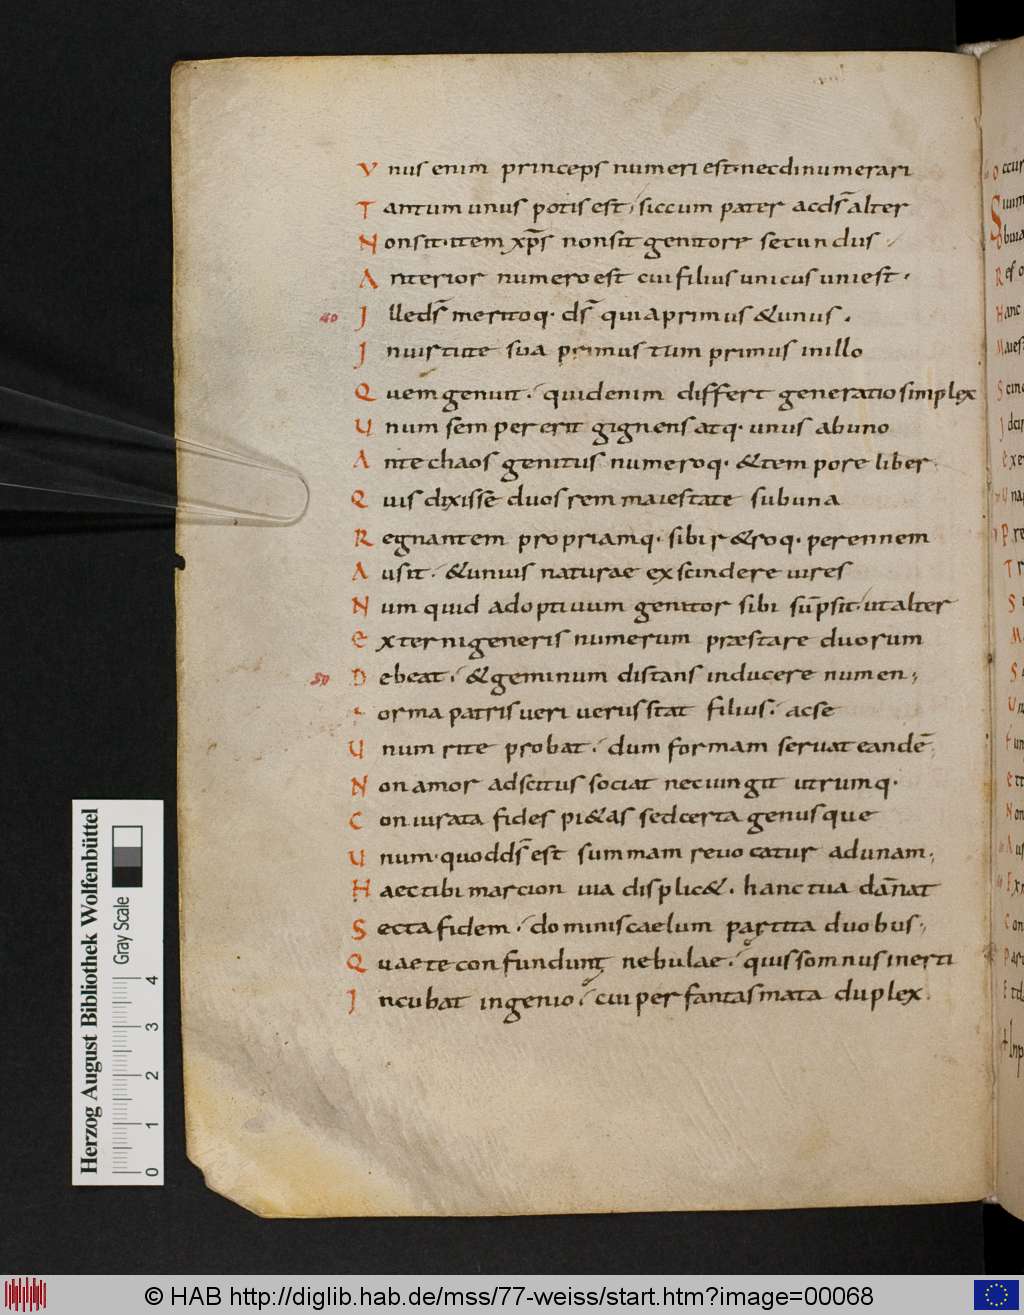 Vnus enim princeps numeri est· nec dinumerari
Tantum unus potis est; sic cum pater ac ds̄ alter
Non sit· item xp̄s non sit genitore secundus
Anterior numero est cui filius unicus uni est·
40 Ille ds̄ meritoq· ds̄ quia primus & unus.
In uirtute sua primus tum primus in illo
Quem genuit· quid enim differt generatio simplex
Unum semper erit gignens atq· unus ab uno
Ante chaos genitus numeroq· & tempore liber
Quis dixisse duos rem maiestate sub una
Regnantem propriamq· sibi r&roq· perennem
Ausit· & unius naturae exscindere uires
Num quid adoptiuum genitor sibi sūpsit· ut alter
Externi generis numerum præstare duorum
50 Debeat· & geminum distans inducere numen;
orma patris ueri uerus stat filius· ac se
Unum rite probat· dum formam seruat eandē
Non amor adscitus sociat nec iungit utrumq·
Coniurata fides pi&as sed certa genusque
Unum· quod ds̄ est summam reuocatur ad unam;
Haec tibi marcion uia displic&· hanc tua dānat
Secta fidem· dominis caelum partita duobus;
Quae te confundunt nebulae· quis somnus inerti
Incubat ingenio· cui per fantasmata duplex.
Herzog August Bibliothek Wolfenbüttel
Gray Scale
0 1 2 3 4
© HAB http://diglib.hab.de/mss/77-weiss/start.htm?image=00068